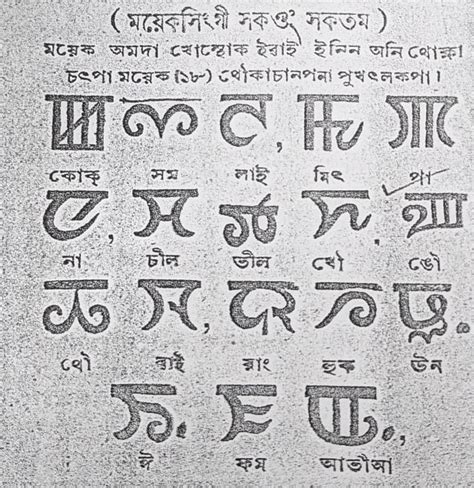 ( ময়েকসিংগী সকতম )
ময়েক অমদা ইরাই ইনিন অনি থোক্লা
চৎপা ময়েক (১৮) থৌকাচানপনা পুখৎলকপা।
ꯀ ꯁ ꯂ, ꯃ ꯄ
কোক্ সম লাই মিৎ পা
ꯅ, ꯆ ꯇ ꯈ. ꯉ
না চীল তীল খৌ ঙৌ
ꯊ ꯋ, ꯌ ꯍ ꯎ.
থৌ ৱাই য়াং হুক উন
ꯏ. ꯐ ꯑ.,
ঈ ফম আতীআ